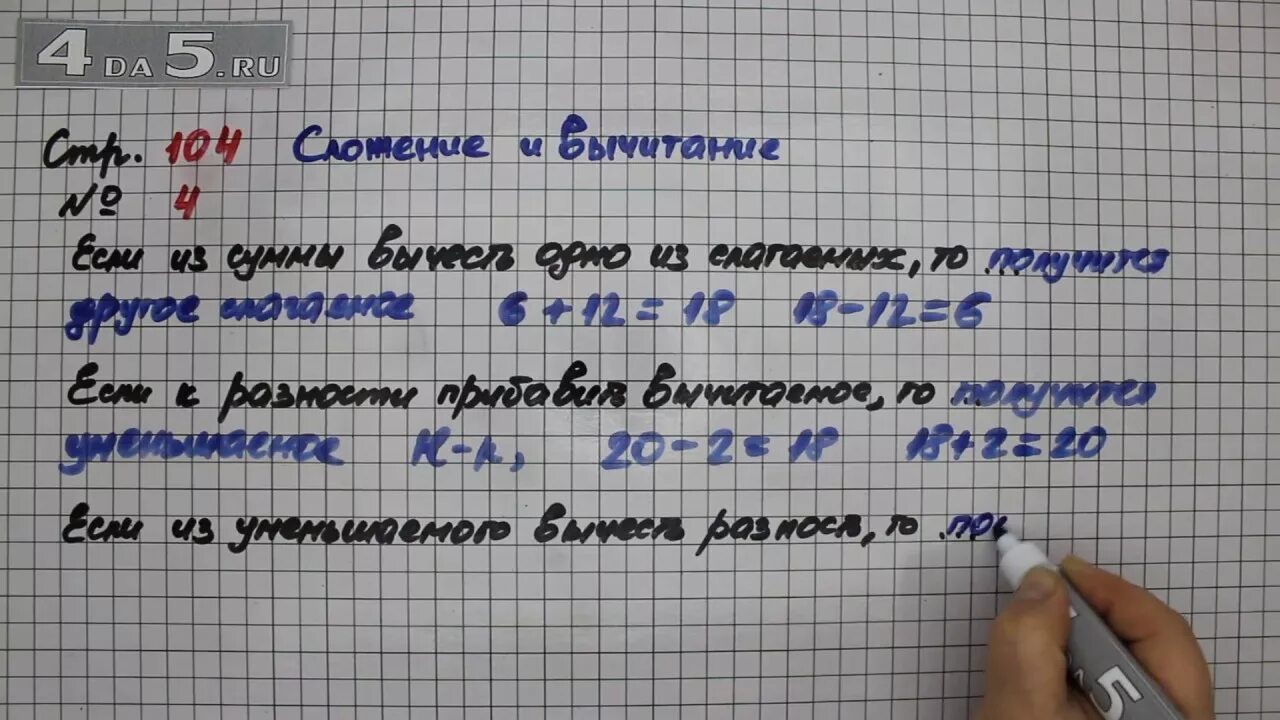 4DA5.RU
Стр. 104 Сложение и вычитание
№ 4
Если из суммы вычесть одно из слагаемых, то получится
другое слагаемое 6+12=18 18-12=6
Если к разности прибавить вычитаемое, то получится
уменьшаемое Н-р, 20-2=18 18+2=20
Если из уменьшаемого вычесть разность, то пол
5